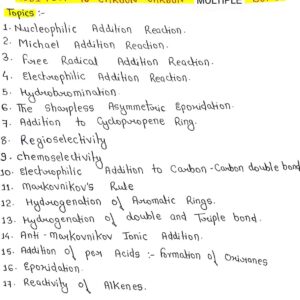 MULTIPLE
Topics :-
1. Nucleophilic Addition Reaction.
2. Michael Addition Reaction.
3. Free Radical Addition Reaction.
4. Electrophilic Addition Reaction.
5. Hydrobromination
6. The Sharpless Asymmetric Epoxidation.
7. Addition to Cyclopropene Ring.
8. Regioselectivity
9. chemoselectivity
10. Electrophilic Addition to Carbon-Carbon double bond
11. Markovnikov's Rule
12. Hydrogenation of Aromatic Rings.
13. Hydrogenation of double and Triple bond.
14. Anti-Markovnikov Ionic Addition.
15. Addition of per Acids :- formation of Oxiranes
16. Epoxidation.
17. Reactivity of Alkenes.